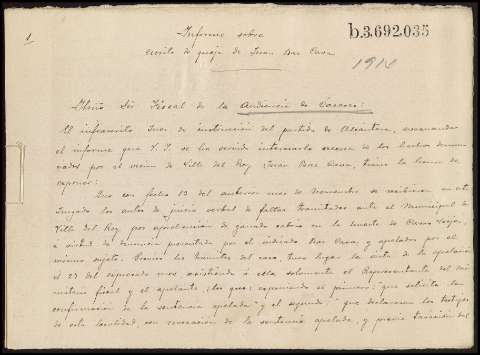 1
b.3.692.035
Informe sobre
escrito de queja de Juan Bas Cava
1916
Ilmo Sr Fiscal de la Audiencia de Cáceres:
El infrascrito Juez de instrucción del partido de Alcántara, evacuando
el informe que V. I. se ha servido interesarle acerca de los hechos denun-
ciados por el vecino de Villa del Rey Juan tiene la honra de
exponer:
Que con fecha 13 del anterior mes de Noviembre se recibieron en este
Juzgado los autos de juicio verbal de faltas tramitados ante el Municipal de
Villa del Rey por de ganado cabrío en la suerte de
á virtud de denuncia presentada por el indicado y apelados por el
mismo sujeto. Previos los trámites del caso, tuvo lugar la vista de la apelación
el 27 del expresado mes asistiendo á ella solamente el Representante del mi-
nisterio fiscal y el apelante, los que, exponiendo el primero, que solicita la
confirmación de la sentencia apelada y el segundo, que declararan los testigos
de esta localidad, con revocación de la sentencia apelada, y previa tasación del